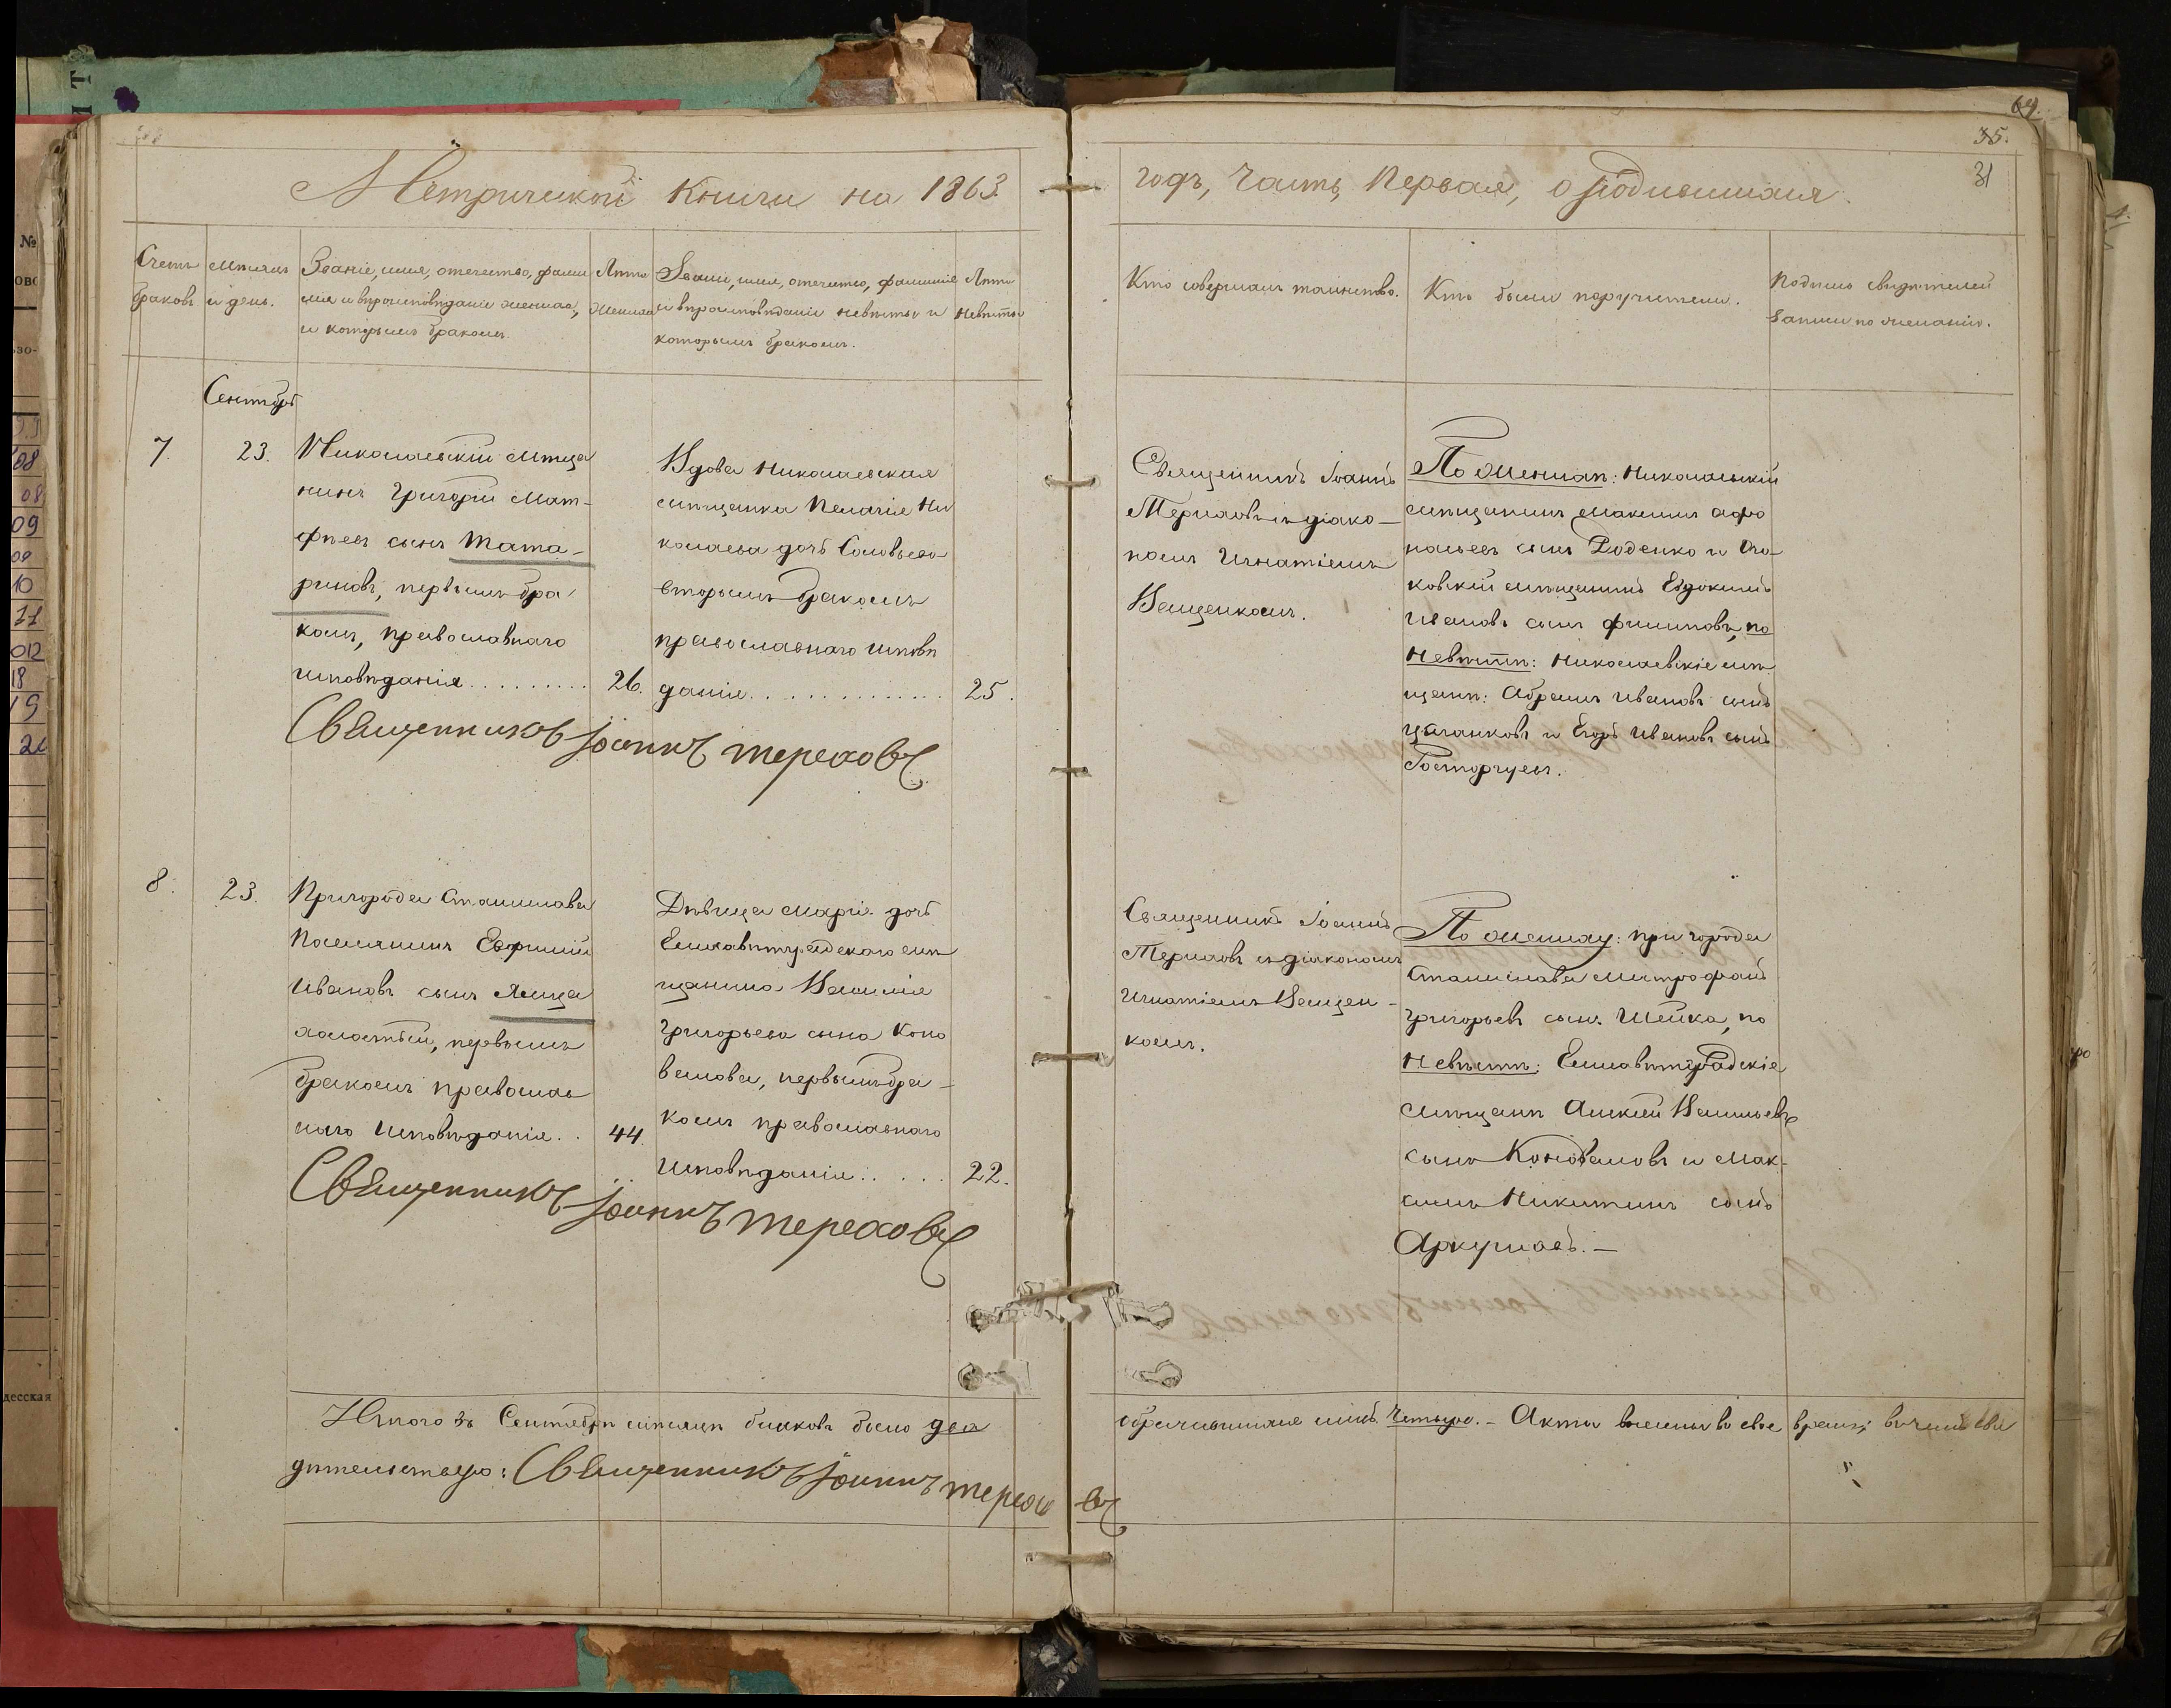 64.
35.
31
Метрической Книги на 1863
годъ, Часть Первая, о родившихся.
Счетъ браковъ
Мѣсяцъ и день.
Званіе, имя, отечество, фами
лія и вѣроисповѣданіе жениха,
и которымъ бракомъ.
Лѣта
жениха
Званіе, имя, отечество, фамиліе
и вѣроисповѣданіе невѣсты и
которымъ бракомъ.
Лѣта
невѣсты
Кто совершалъ таинство.
Кто были поручители.
Подпись свидѣтелей
записи по желанію.
Сентябрь
7.
23.
Николаевскій мѣща
нинъ Григорій Мат-
фѣевъ сынъ Тата-
риновъ, первымъ бра
комъ, православнаго
исповѣданія.........
26.
Вдова Николаевская
мѣщанка Пелагія Ни
колаева дочь Соловьева
вторымъ бракомъ
православнаго исповѣ
данія..............
25.
Священникъ Іоаннъ Тереховъ
Священникъ Іоаннъ
Тереховъ съ діако-
номъ Игнатіемъ
Ващенкомъ.
По женихѣ: Николаевскій
мѣщанинъ Максимъ Афо
насьевъ сынъ Роденко и Оча-
ковскій мѣщанинъ Евдокимъ
Ивановъ сынъ Филиповъ, по
невѣстѣ: Николаевскіе мѣ
щане: Абрамъ Ивановъ сынъ
Цыганковъ и Егоръ Ивановъ сынъ
Расторгуевъ.
8.
23.
Пригорода Станислава
Поселянинъ Евфимій
Ивановъ сынъ
первымъ
бракомъ православ
наго исповѣданія..
44.
Дѣвица Марія дочь
Елисаветградскаго мѣ
щанина Василія
Григорьева сына Коно
валова, первымъ бра-
комъ православнаго
исповѣданія.....
22.
Священникъ Іоаннъ Тереховъ
Священникъ Іоаннъ
Тереховъ съ діакономъ
Игнатіемъ Ващен-
комъ.
По жениху: пригорода
Станислава Митрофанъ
Григорьевъ сынъ Шейка, по
невѣстѣ: Елисаветградскіе
мѣщане Алексѣй Васильевъ
сынъ Коноваловъ и Мак-
симъ Никитинъ сынъ
Итого въ Сентябрѣ мѣсяцѣ браковъ было два
Акты внесены въ свое время; въ чемъ сви
дѣтельствую: Священникъ Іоаннъ Тереховъ